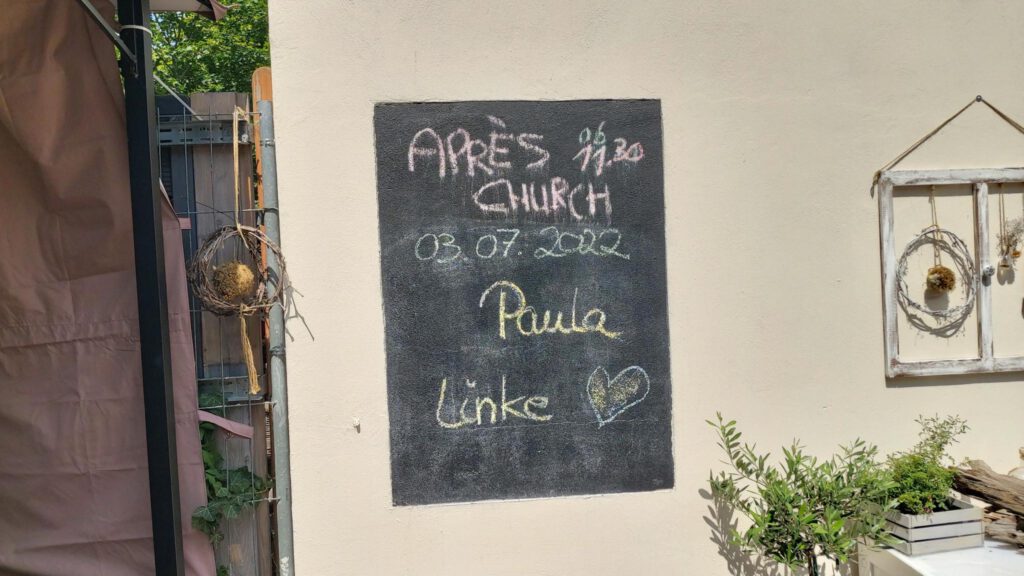 APRÈS 11.30
CHURCH
03.07.2022
Paula
Linke